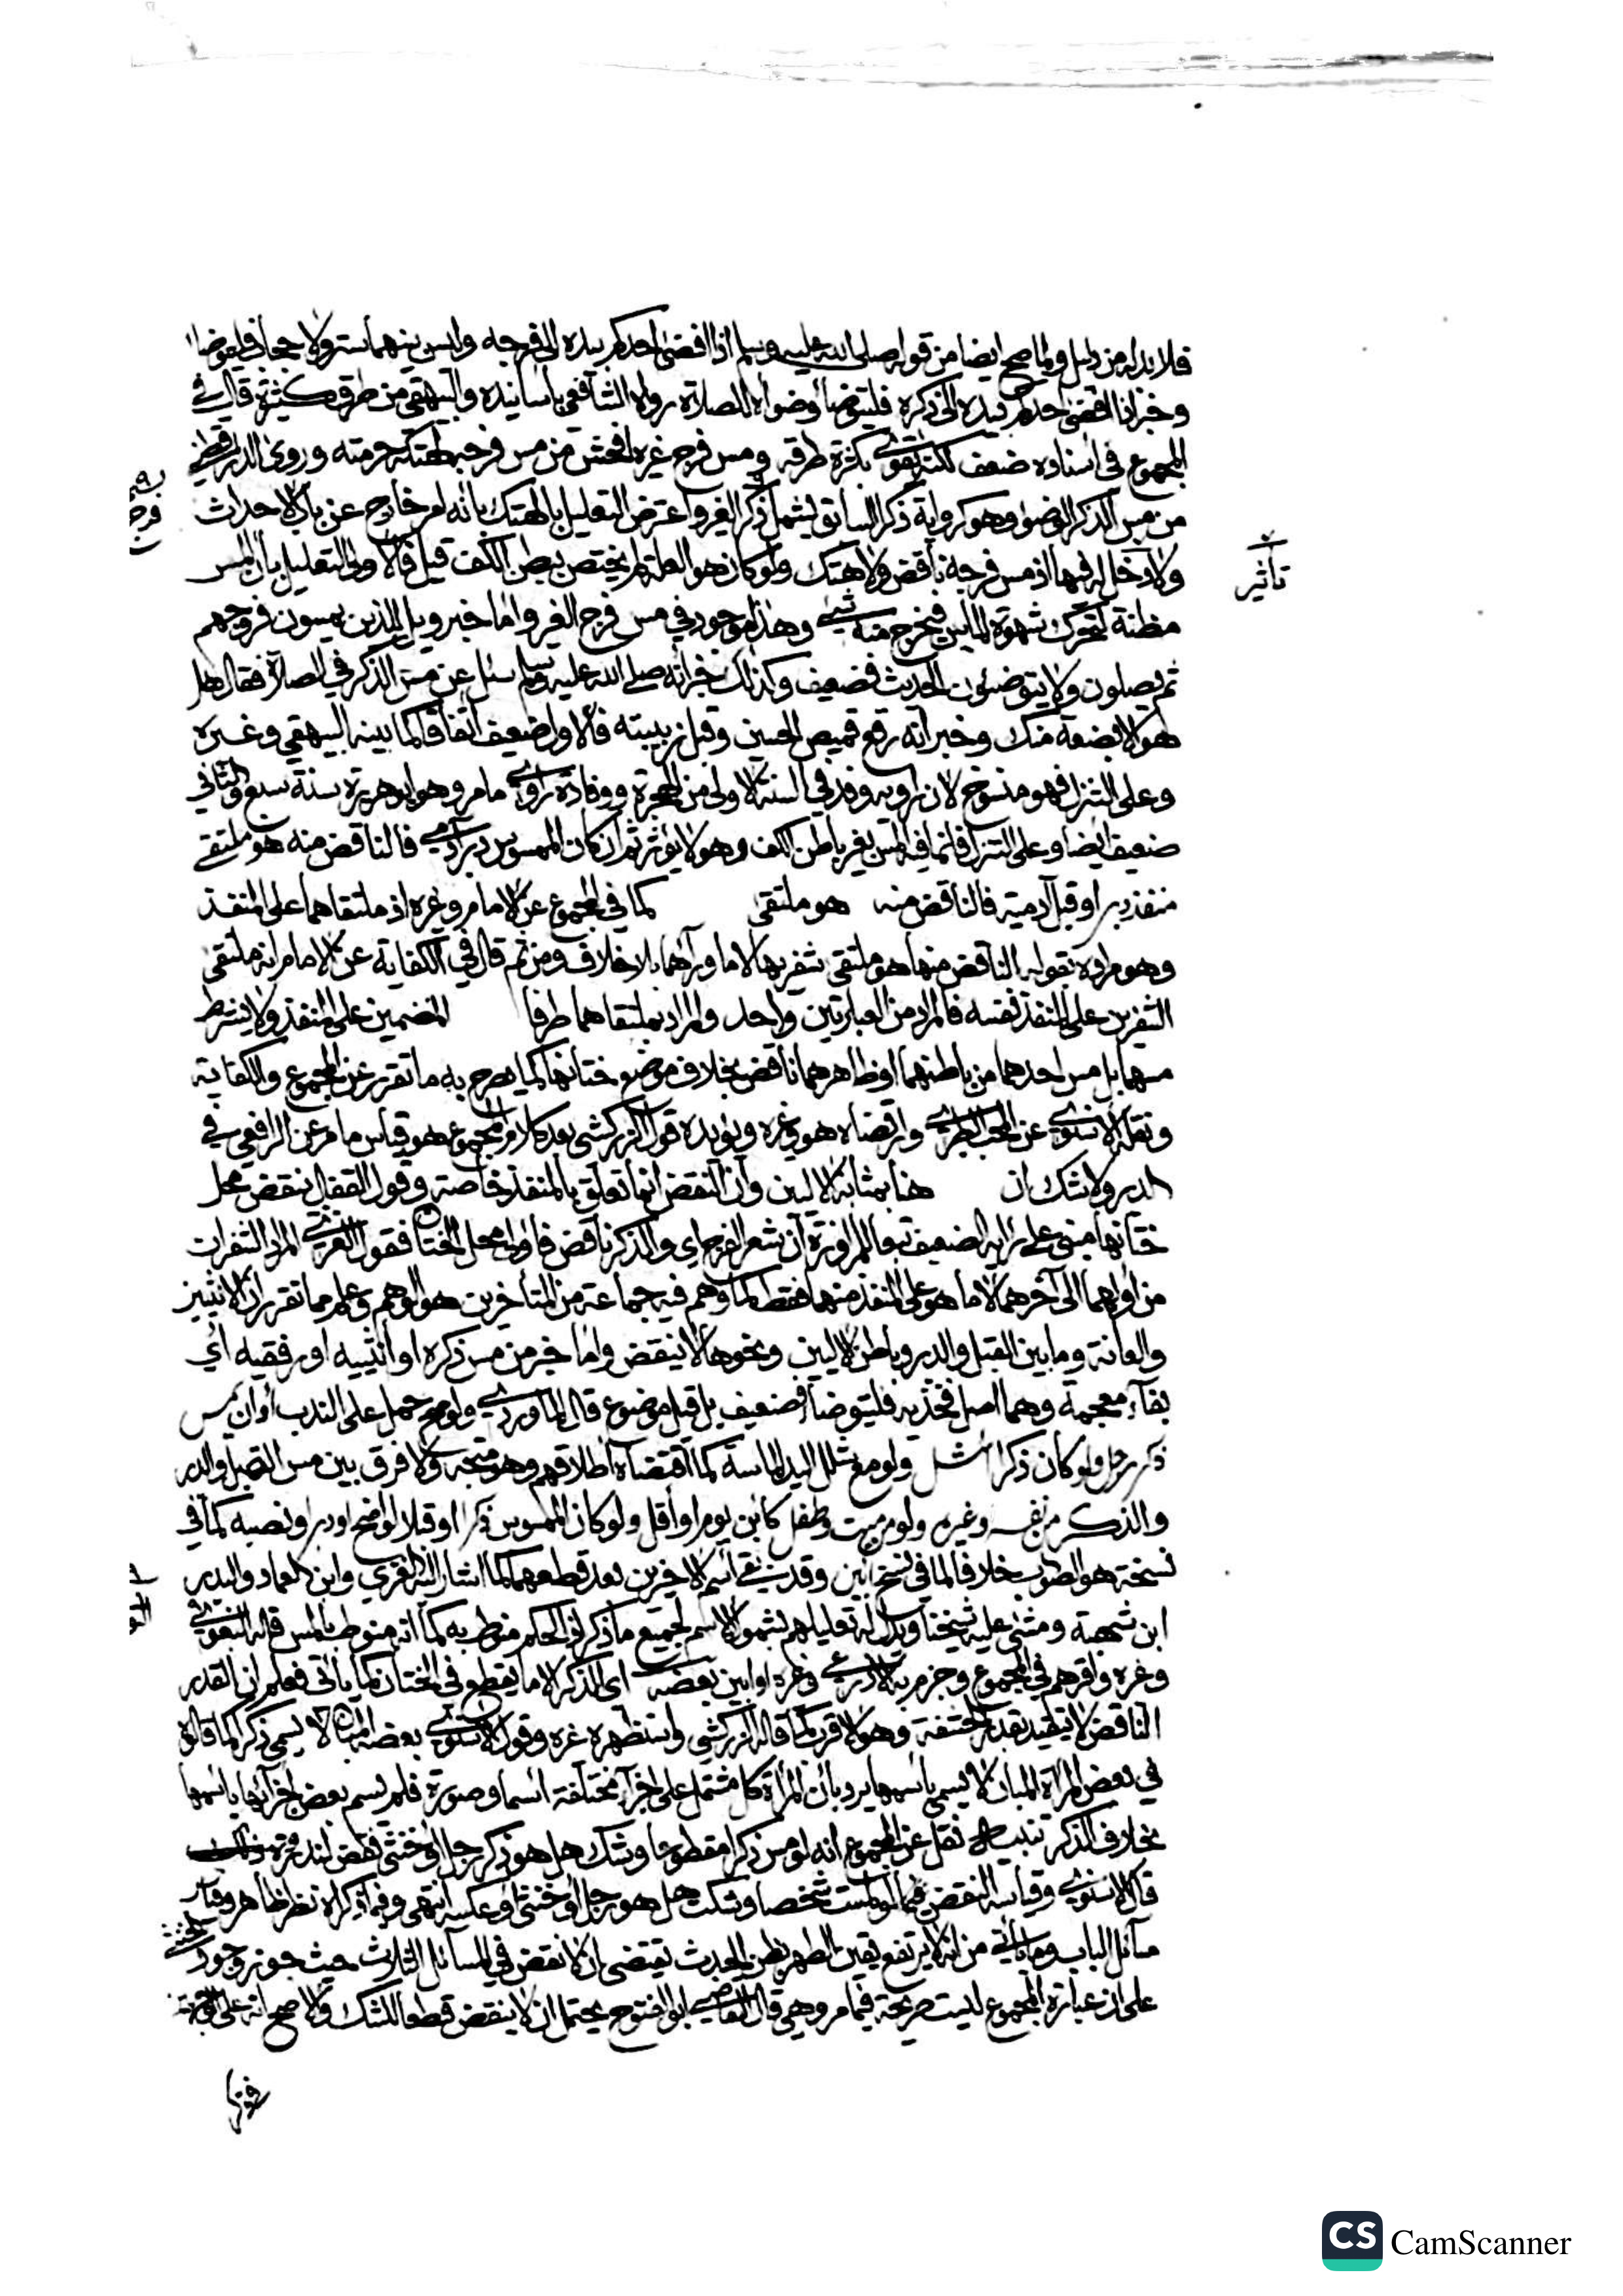 فلا بد له من دليل ولما صح ايضا من قوله صلى الله عليه وسلم اذا افضى احدكم بيده الى فرجه وليس بينهما ستر ولا حجاب فليتوضا
وخبر اذا افضى احدكم بيده الى ذكره فليتوضأ وضوءه للصلاة رواه الشافعي باسانيده والبيهقي من طرق كثيرة قال في
المجموع في اسناده ضعف لكنه يقوى بكثرة طرقه ومس فرج غيره افحش من مس فرجه لهتكه حرمته وروى الدارقطني
من مس الذكر الوضوء وهو كرواية ذكر السابق يشمل ذكر الغير واعترض التعليل بالهتك بانه امر خارج عن باب الاحداث
ولا دخل له فيها اذ مس فرجه ناقض ولا هتك ولو كان هو العلة لم يختص ببطن الكف قيل فالاولى التعليل بان المس
تأثير
مظنة لتحرك شهوة الماس فيخرج منه شيء وهذا موجود في مس فرج الغير واما خبر ويل للذين يمسون فروجهم
ثم يصلون ولا يتوضئون الحديث فضعيف وكذلك خبر انه صلى الله عليه وسلم سئل عن مس الذكر في الصلاة فقال هل
هو الا بضعة منك وخبر انه رفع قميص الحسين وقبل زبيبته فالاول ضعيف اتفاقا كما بينه البيهقي وغيره
وعلى التنزل فهو منسوخ لان راويه وفد في السنة الاولى من الهجرة ووفادة راوي ما مر وهو ابو هريرة سنة سبع والثاني
ضعيف ايضا وعلى التنزل فانما فيه المس بغير باطن الكف وهو لا يؤثر ثم ان كان الممسوس دبر آدمي فالناقض منه هو ملتقى
منفذ دبر او قبل آدمية فالناقض منه هو ملتقى كما في المجموع عن الامام وغيره اذ ملتقاهما على المنفذ
وهو مراده بقوله الناقض منها هو ملتقى شفريها لا ما وراءهما بلا خلاف ومن ثم قال في الكفاية عن الامام انه ملتقى
الشفرين على المنفذ نفسه فالمراد من العبارتين واحد والمراد بملتقاهما طرفا المنضمين على المنفذ ولا يشترط
مسهما بل مس احدهما من باطنهما او ظاهرهما ناقض بخلاف موضع ختانها كما يصرح به ما تقرر عن المجموع والكفاية
ونقله الاسنوي عن المحب الطبري وارتضاه هو وغيره ويؤيده قول الزركشي بعد كلام المجموع هو قياس ما مر عن الرافعي في
الدبر ولا شك ان هنا بمثابة الاليين وان النقض انما تعلق بالمنفذ خاصة وقول القفال ينقض محل
ختانها مبني على رايه الضعيف تبعا للمراوزة ان شعر الفرج اي والذكر ناقض فاولى محل الختان فقول الغزي المراد الشفران
من اولهما الى آخرهما لا ما هو على المنفذ منهما فقط كما وهم فيه جماعة من المتأخرين هو الوهم وعلم مما تقرر ان الانثيين
والعانة وما بين القبل والدبر وباطن الاليين ونحوها لا ينقض واما خبر من مس ذكره او انثييه او رفغيه اي
بغاء معجمة وهما اصل فخذيه فليتوضأ فضعيف بل قيل موضوع قال الماوردي ولو صح حمل على الندب او ان يمس
ذكر رجل ولو كان ذكرا اشل ولو مع شلل اليد الماسة كما اقتضاه اطلاقهم وهو متجه ولا فرق بين مس القبل والدبر
والذكر من نفسه وغيره ولو من ميت وطفل كابن يوم او أقل ولو كان الممسوس ذكرا او قبلا لواضح او دبر ونصبه كما في
نسخة هو الصواب خلافا لما في نسخ ابين وقد بقي اسم الاخيرين بعد قطعهما كما اشار اليه الغزي وابن العماد والبدر
ابن شهبة ومشى عليه شيخنا ويدل له تعليلهم بشمول الاسم لجميع ما ذكر اذ الحكم منوط به كما انه منوط بالمس قاله البغوي
وغيره واقرهم في المجموع وجزم به الاذرعي وغيره او ابين بعضه اي الذكر الا ما يقطع في الختان كما يأتي فعلم ان القدر
الناقض لا يتقيد بقدر الحشفة وهو الاقرب كما قاله الزركشي واستظهره غيره وقول الاسنوي بعضه المبان لا يسمى ذكرا كما قالوه
في بعض المرأة المبان لا يسمى باسمها يرد بان المرأة كل مشتمل على اجزاء مختلفة اسما وصورة فلم يسم بعض اجزائها باسمها
بخلاف الذكر تنبيه نقل عن المجموع انه لو مس ذكرا مقطوعا وشك هل هو ذكر رجل او خنثى نقض لندرة
قال الاسنوي وقياسه النقض فيما لو لمست شخصا وشكت هل هو رجل او خنثى او عكسه انتهى وفيما ذكراه نظر ظاهر وقياس
مسائل الباب وما يأتي من انه لا يرتفع يقين الطهر بظن الحدث يقتضي ان لا نقض في المسائل الثلاث حيث جوز وجود خنثى
على ان عبارة المجموع ليست صريحة فيما مر وهي قال القاضي ابو الفتوح يحتمل ان لا ينقض قطعا للشك والاصح انه على